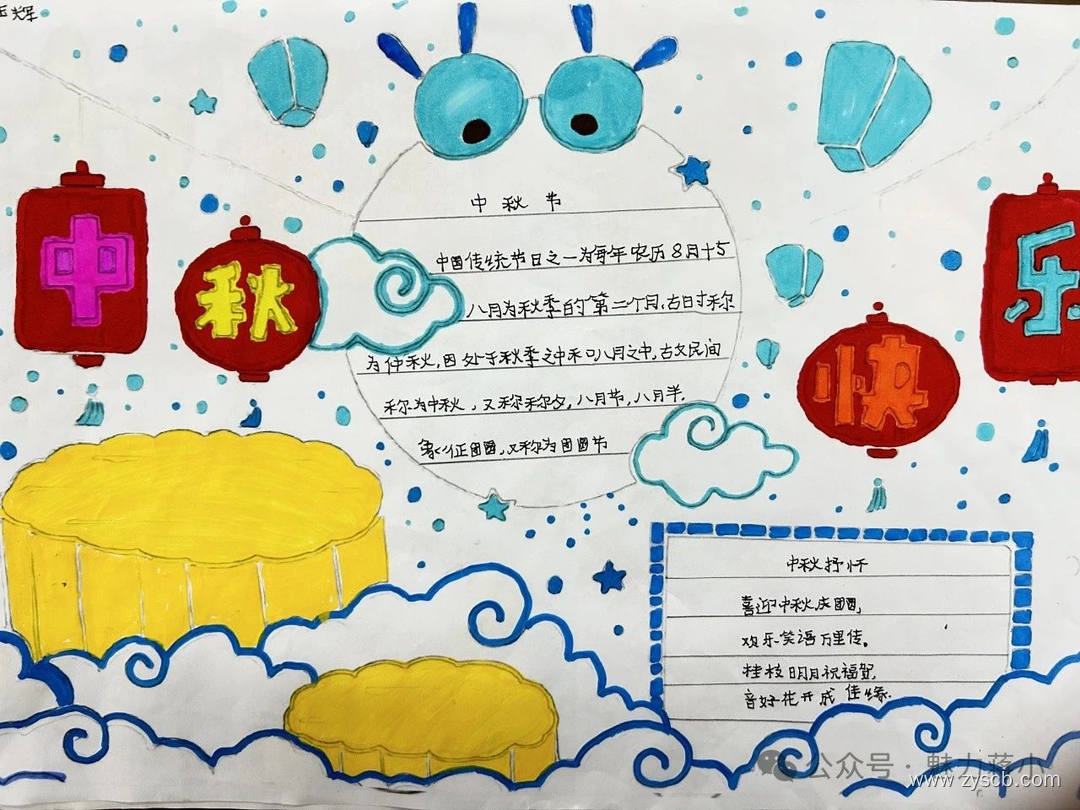 辉
中秋快乐
中秋节
中国传统节日之一为每年农历8月十5
八月为秋季的第二个月,古时称
为仲秋,因处于秋季之中和八月之中,古又民间
称为中秋,又称称夕,八月节,八月半.
象征团圆,又称为团圆节
中秋抒怀
喜迎中秋庆团圆,
欢乐笑语万里传。
桂枝明月祝福贺,
音好花开成佳缘.
公众号·魅力蒋小
www.zyscb.com